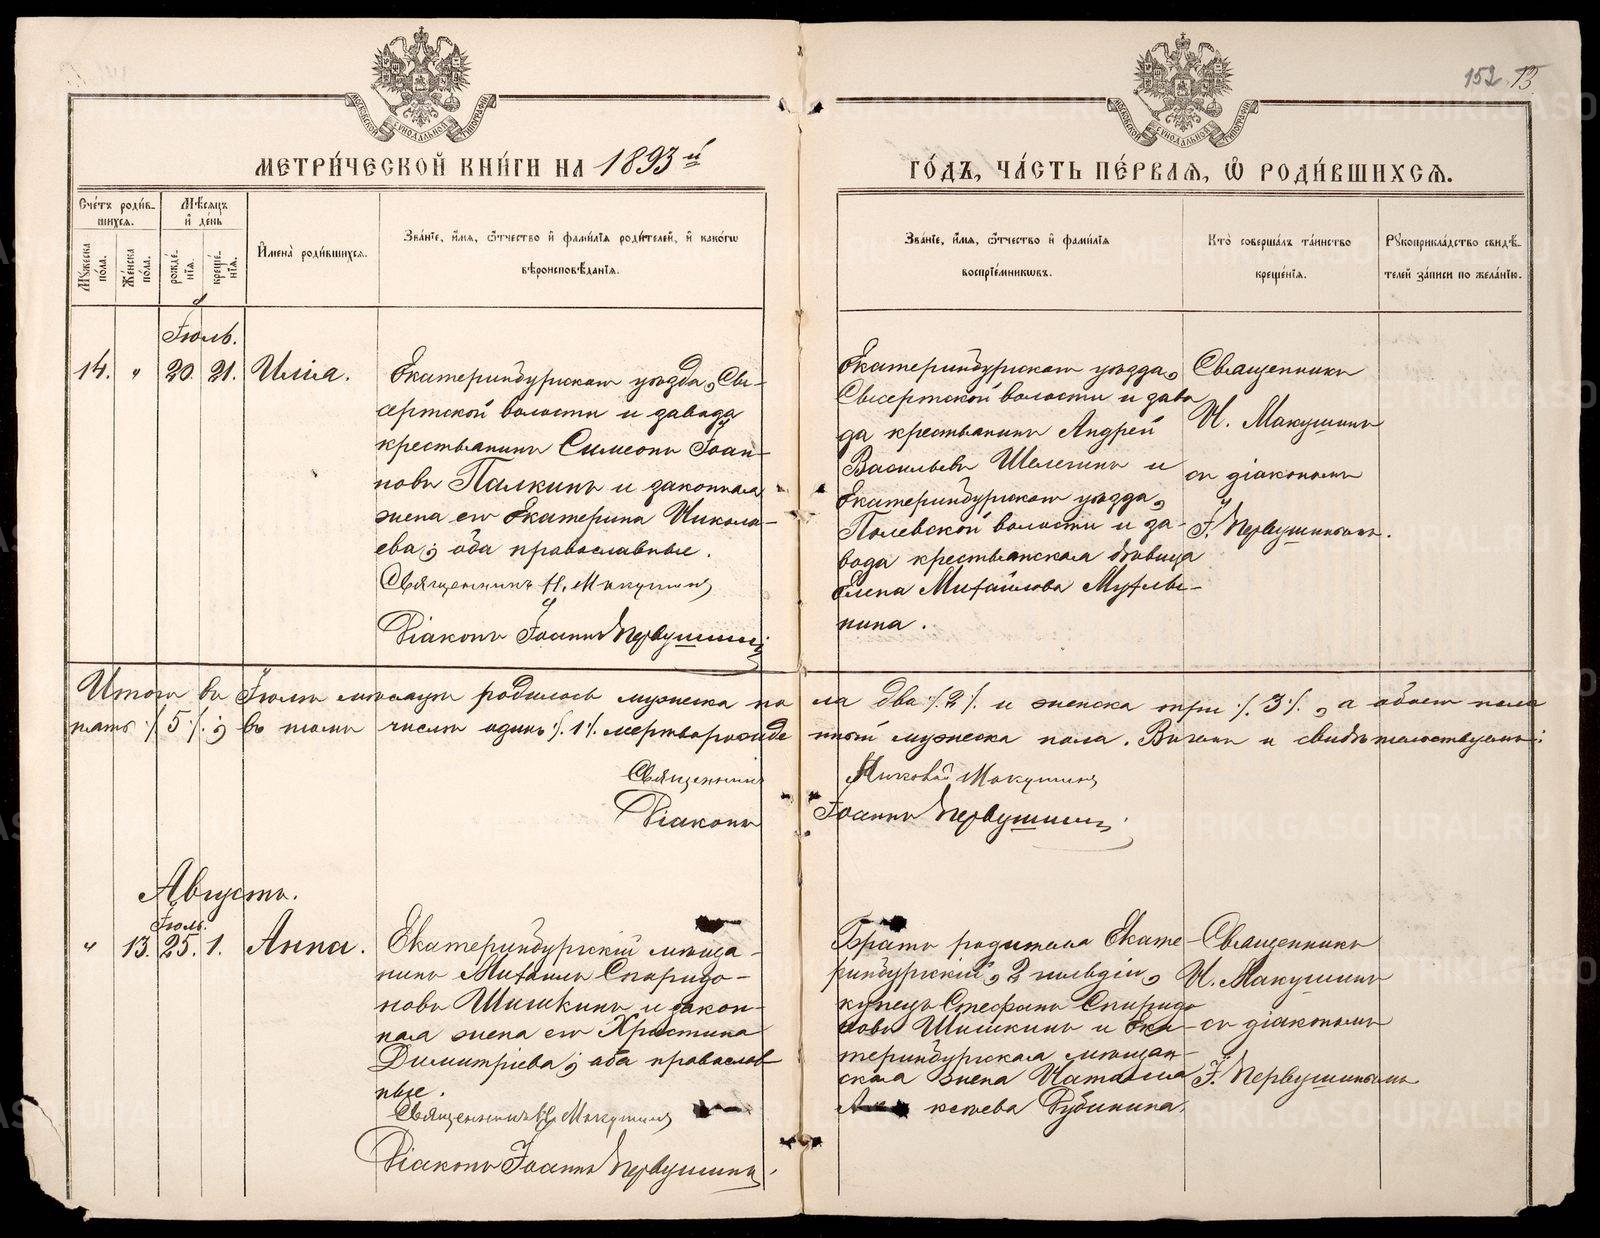 152 13
МЕТРИ́ЧЕСКОЙ КНИ́ГИ НА 1893й
ГО́ДЪ, ЧА́СТЬ ПЕ́РВАЯ, Ѡ РОДИ́ВШИХСЯ.
Сче́тъ роди́в-
шихся.
Му́жеска по́ла.
Же́нска по́ла.
Мѣ́сяцъ
и де́нь
рожде́-
нїя.
креще́-
нїя.
Имена̀ роди́вшихся.
Зва́нїе, и́мя, ѻ́тчество и фами́лїя роди́телей, и како́гѡ
вѣроисповѣ́данїя.
Зва́нїе, и́мя, ѻ́тчество и фами́лїя
воспрїе́мниковъ.
Кто̀ соверша́лъ та́инство
креще́нїя.
Рукоприкла́дство свидѣ́-
телей за́писи по жела́нїю.
Іюль.
14. " 20. 21. Илія.
Екатеринбургскаго уѣзда, Сы-
сертской волости и завода
крестьянинъ Симеонъ Іоан-
новъ Палкинъ и законная
жена его Екатерина Никола-
ева; оба православные.
Священникъ Н. Макушинъ
Діаконъ Іоаннъ Первушинъ
Екатеринбургскаго уѣзда,
Сысертской волости и заво
да крестьянинъ Андрей
Васильевъ Шелегинъ и
Екатеринбургскаго уѣзда,
Полевской волости и за-
вода крестьянская дѣвица
Елена Михайлова Мухлы-
нина.
Священникъ
Н. Макушинъ
съ діакономъ
І. Первушинымъ.
Итого въ Іюлѣ мѣсяцѣ родилось мужеска по ла два ·/.2·/. и женска три ·/.3·/., а обоего пола
пять ·/.5·/.; въ томъ числѣ одинъ ·/.1·/. мертворожде нный мужеска пола. Въ чемъ и свидѣтельствуемъ:
Священникъ Николай Макушинъ
Діаконъ Іоаннъ Первушинъ
Августъ.
Іюль.
" 13. 25. 1. Анна.
Екатеринбургскій мѣща-
нинъ Михаилъ Спиридо-
новъ Шишкинъ и закон-
ная жена его Христина
Димитріева; оба православ
ные.
Священникъ Н. Макушинъ
Діаконъ Іоаннъ Первушинъ
Братъ родителя Екате-
ринбургскій, 2 гильдіи,
купецъ Стефанъ Спиридо
новъ Шишкинъ и Ека-
теринбургская мѣщан-
ская жена Наталія
кѣева Рубинина.
Священникъ
Н. Макушинъ
съ діакономъ
І. Первушинымъ
METRIKI.GASO-URAL.RU